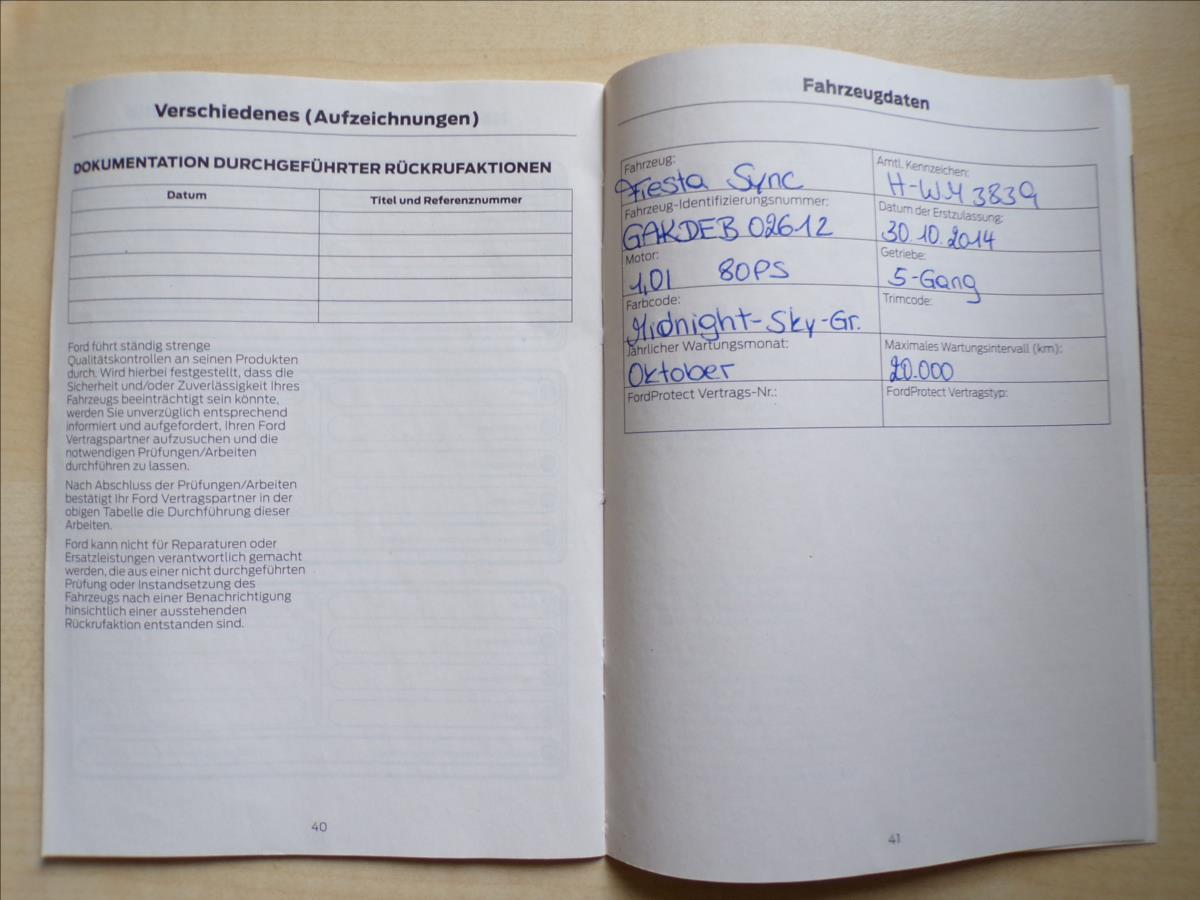 Verschiedenes (Aufzeichnungen)
DOKUMENTATION DURCHGEFÜHRTER RÜCKRUFAKTIONEN
Datum
Titel und Referenznummer
Ford führt ständig strenge
Qualitätskontrollen an seinen Produkten
durch. Wird hierbei festgestellt, dass die
Sicherheit und/oder Zuverlässigkeit Ihres
Fahrzeugs beeinträchtigt sein könnte,
werden Sie unverzüglich entsprechend
informiert und aufgefordert, Ihren Ford
Vertragspartner aufzusuchen und die
notwendigen Prüfungen/Arbeiten
durchführen zu lassen.
Nach Abschluss der Prüfungen/Arbeiten
bestätigt Ihr Ford Vertragspartner in der
obigen Tabelle die Durchführung dieser
Arbeiten.
Ford kann nicht für Reparaturen oder
Ersatzleistungen verantwortlich gemacht
werden, die aus einer nicht durchgeführten
Prüfung oder Instandsetzung des
Fahrzeugs nach einer Benachrichtigung
hinsichtlich einer ausstehenden
Rückrufaktion entstanden sind.
40
Fahrzeugdaten
Fahrzeug:
Fiesta Sync
Amtl. Kennzeichen:
H-WM 3839
Fahrzeug-Identifizierungsnummer:
GAKDEB 02612
Datum der Erstzulassung:
30.10.2014
Motor:
1,0l 80PS
Getriebe:
5-Gang
Farbcode:
Midnight-Sky-Gr.
Trimcode:
Jährlicher Wartungsmonat:
Oktober
Maximales Wartungsintervall (km):
20.000
FordProtect Vertrags-Nr.:
FordProtect Vertragstyp:
41